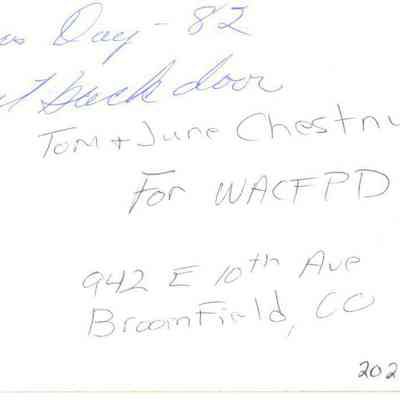 as Day - 82
at back door
Tom + June Chestnu
For WACFPD
942 E 10th Ave
Broomfield, CO
202